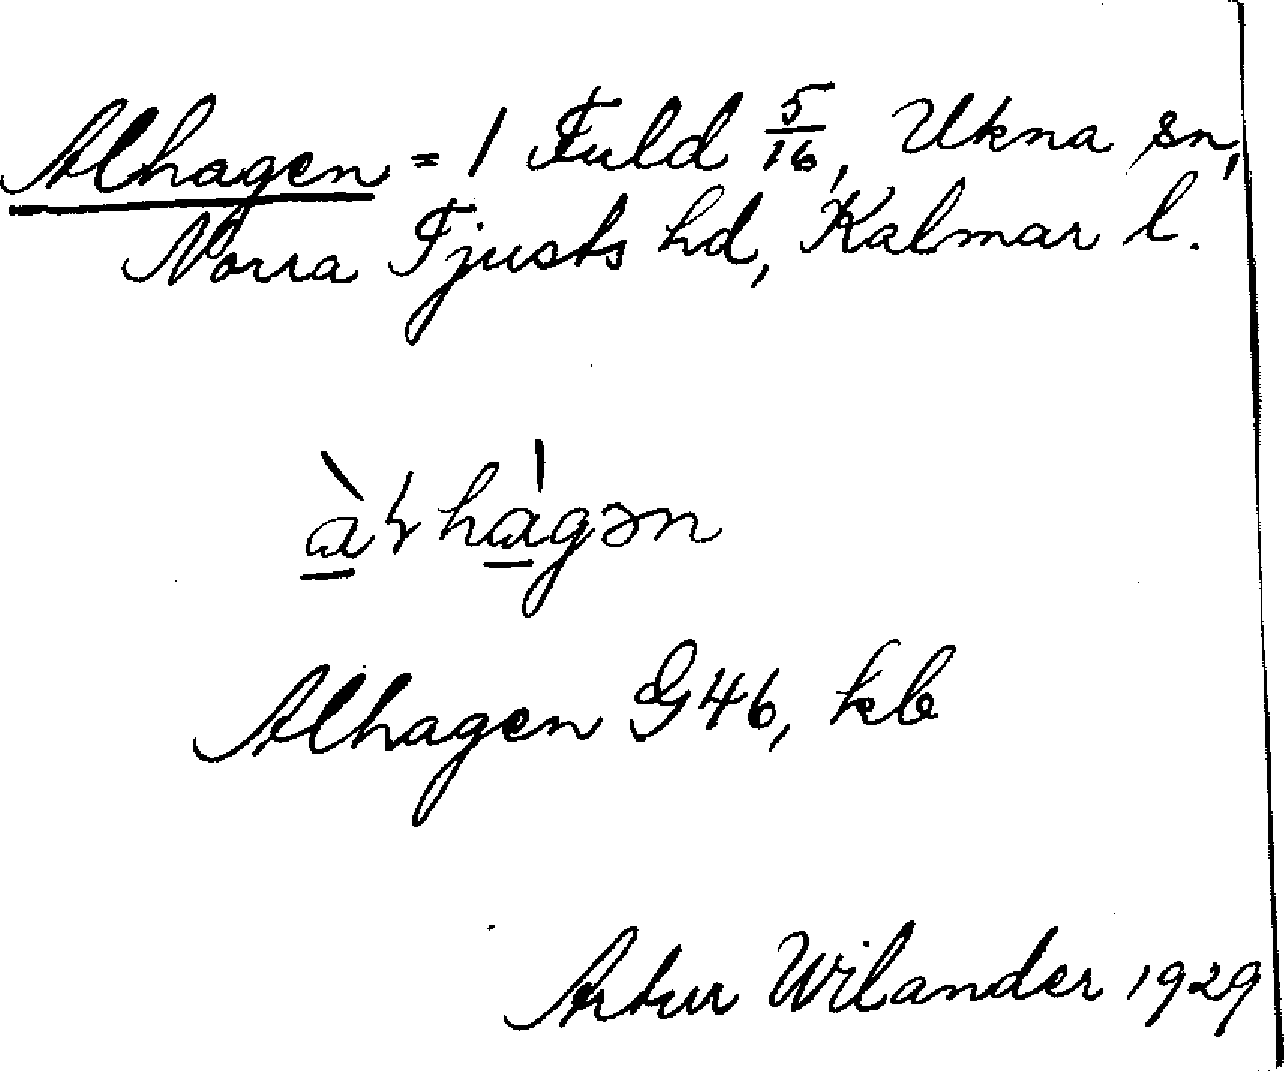 Alhagen = 1 Fuld 5/16, Ukna sn,
Norra Tjusts hd, Kalmar l.
Alhagen G46, kb
Artur Wilander 1929